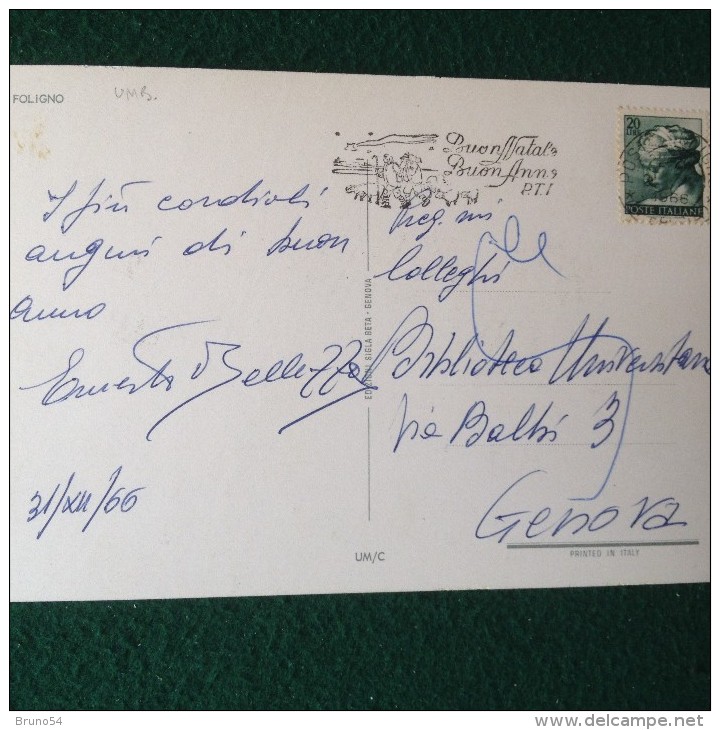 FOLIGNO
UMB.
Buon Natale
Buon Anno
P.T.I
20
LIRE
1966
POSTE ITALIANE
I più cordiali
auguri di buon
anno
Ernesto Bellezza
31/XII/66
EDIZIONI SIGLA BETA - GENOVA
UM/C
Preg.mi
Colleghi
Biblioteca Universitaria
Via Balbi 3
Genova
PRINTED IN ITALY
Bruno54
http://www.delcampe.net